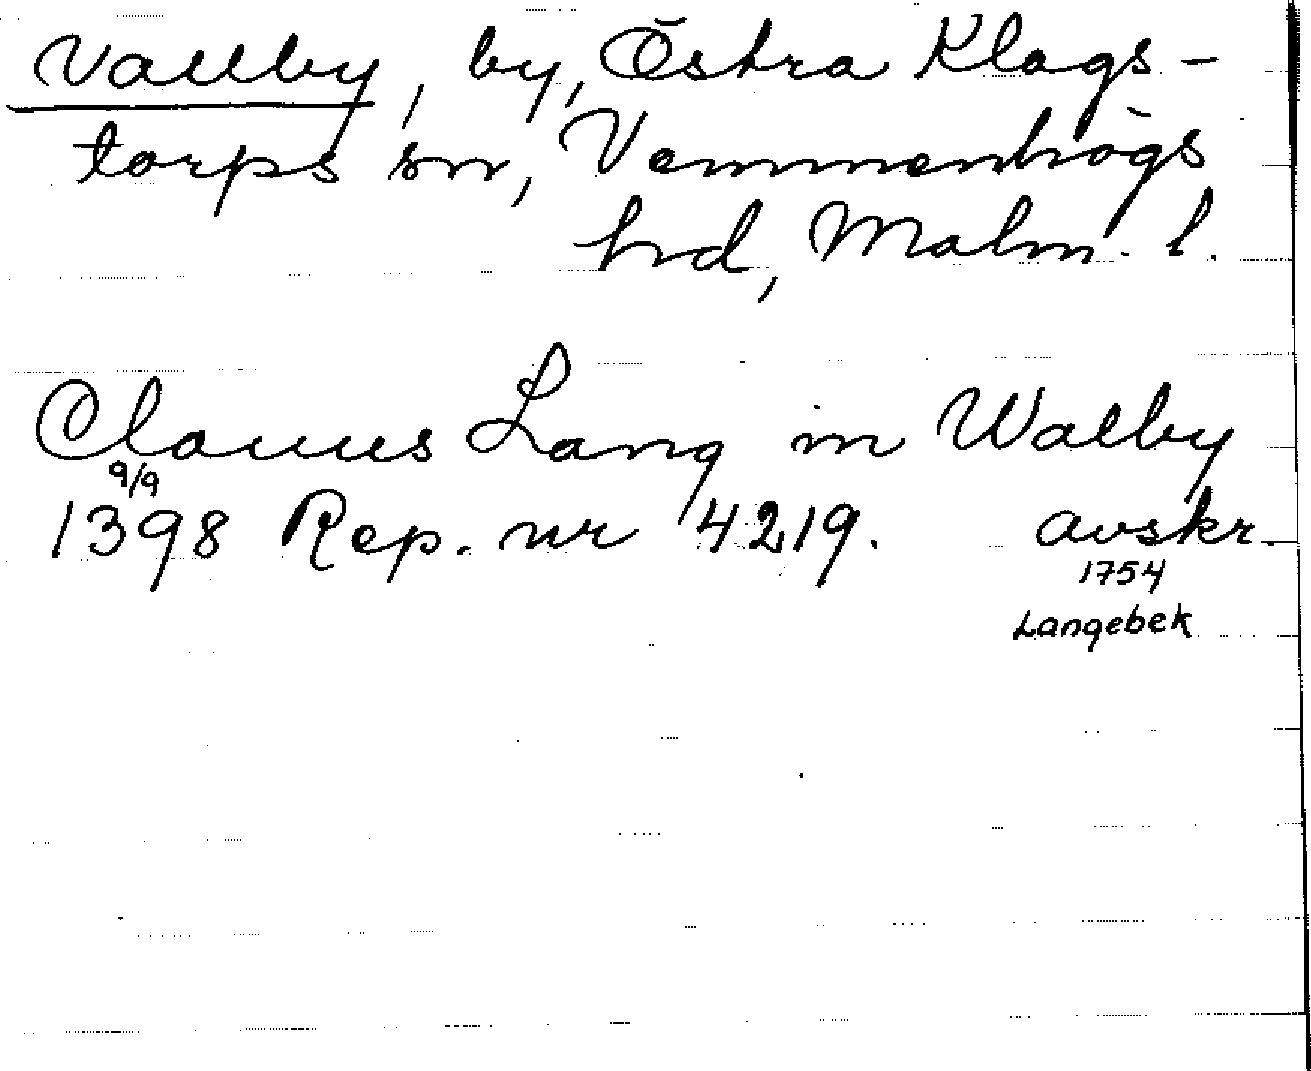 Vallby, by, Östra Klags-
torps sn, Vemmenhögs
hrd, Malm. l.
Clauus Lang in Walby
9/9
1398 Rep. nr 4219. avskr.
1754
Langebek